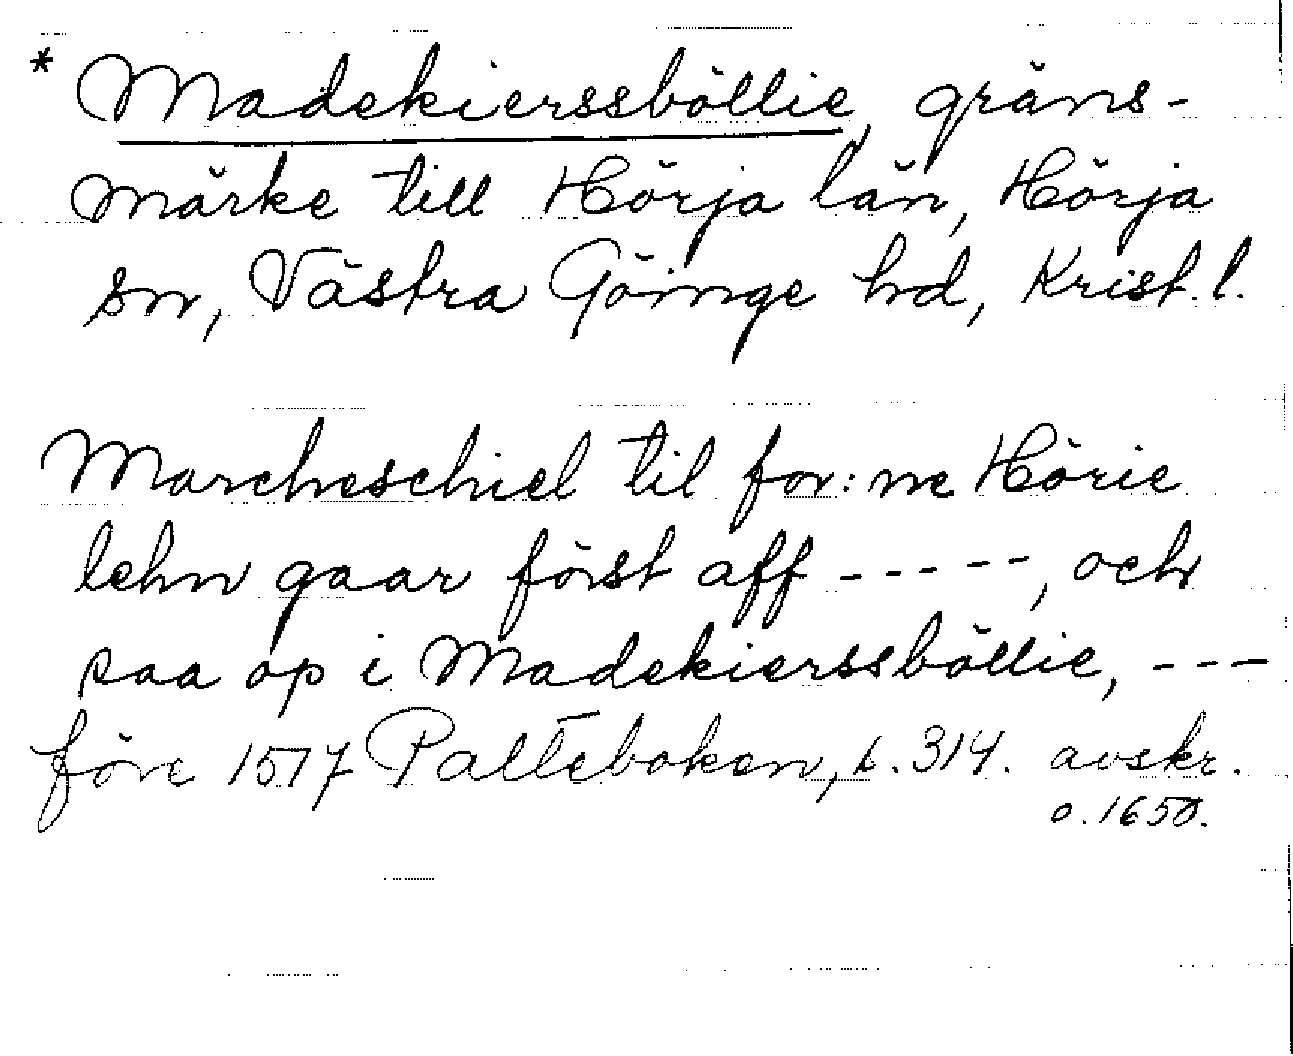 * Madekierssböllie, gräns-
märke till Hörja län, Hörja
sn, Västra Göinge hd, Krist. l.
Marcheschiel til for: ne Hörie
lehn gaar först aff - - - - -, och
saa op i Madekierssböllie, - - -
före 1577 Palteboken, s. 314. avskr.
o. 1650.